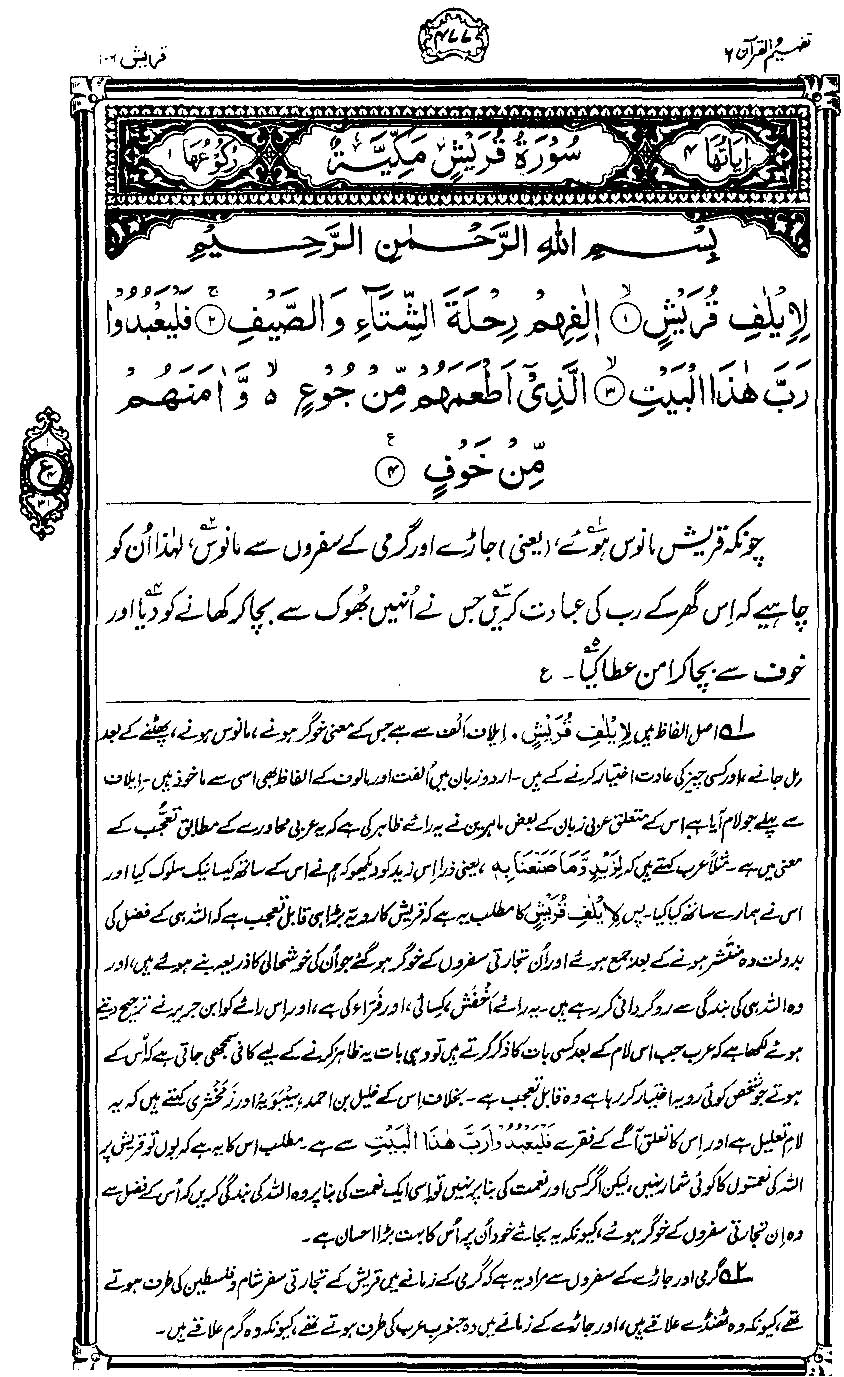 تفہیم القرآن ۶
۴۷۷
قریش ۱۰۶
اٰیَاتُهَا ۴
سُوْرَةُ قُرَيْشٍ مَكِّيَّةٌ
رُكُوْعُهَا ۱
بِسْمِ اللهِ الرَّحْمٰنِ الرَّحِيْمِ
لِاِيْلٰفِ قُرَيْشٍ ۙ﴿۱﴾ اٖلٰفِهِمْ رِحْلَةَ الشِّتَآءِ وَالصَّيْفِ ۚ﴿۲﴾ فَلْيَعْبُدُوْا
رَبَّ هٰذَا الْبَيْتِ ۙ﴿۳﴾ الَّذِيْٓ اَطْعَمَهُمْ مِّنْ جُوْعٍ ۙ۵ وَّاٰمَنَهُمْ
مِّنْ خَوْفٍ ﴿۴﴾ ع
۱
ع
۴
۳۱
چونکہ قریش مانوس ہوئے۱؎، (یعنی) جاڑے اور گرمی کے سفروں سے مانوس۲؎، لہٰذا اُن کو
چاہیے کہ اِس گھر کے رب کی عبادت کریں۳؎ جس نے اُنہیں بھُوک سے بچا کر کھانے کو دیا۴؎ اور
خوف سے بچا کر امن عطا کیا۵؎۔ ع
۱؎ اصل الفاظ ہیں لِاِيْلٰفِ قُرَيْشٍ۔ ایلاف الف سے ہے جس کے معنی خوگر ہونے، مانوس ہونے، پھٹنے کے بعد
مل جانے، اور کسی چیز کی عادت اختیار کرنے کے ہیں۔ اردو زبان میں اُلفت اور مالوف کے الفاظ بھی اسی سے ماخوذ ہیں۔ اِیلاف
سے پہلے جو لام آیا ہے اس کے متعلق عربی زبان کے بعض ماہرین نے یہ رائے ظاہر کی ہے کہ یہ عربی محاورے کے مطابق تعجُّب کے
معنی میں ہے۔ مثلاً عرب کہتے ہیں کہ لِزَيْدٍ وَّمَا صَنَعْنَا بِهٖ، یعنی ذرا اِس زید کو دیکھو کہ ہم نے اس کے ساتھ کیسا نیک سلوک کیا اور
اس نے ہمارے ساتھ کیا کیا۔ پس لِاِيْلٰفِ قُرَيْشٍ کا مطلب یہ ہے کہ قریش کا رویّہ بڑا ہی قابلِ تعجب ہے کہ اللہ ہی کے فضل کی
بدولت وہ منتشر ہونے کے بعد جمع ہوئے اور اُن تجارتی سفروں کے خوگر ہو گئے جو اُن کی خوشحالی کا ذریعہ بنے ہوئے ہیں، اور
وہ اللہ ہی کی بندگی سے روگردانی کر رہے ہیں۔ یہ رائے اَخْفَش، کِسائی، اور فَرّاء کی ہے، اور اِس رائے کو ابن جریر نے ترجیح دیتے
ہوئے لکھا ہے کہ عرب جب اس لام کے بعد کسی بات کا ذکر کرتے ہیں تو وہی بات یہ ظاہر کرنے کے لیے کافی سمجھی جاتی ہے کہ اُس کے
ہوتے جو شخص کوئی رویہ اختیار کر رہا ہے وہ قابلِ تعجب ہے۔ بخلاف اِس کے خلیل بن احمد، سِیْبَوَیْہ اور زَمَخْشَری کہتے ہیں کہ یہ
لامِ تعلیل ہے اور اِس کا تعلق آگے کے فقرے فَلْيَعْبُدُوْا رَبَّ هٰذَا الْبَيْتِ سے ہے۔ مطلب اس کا یہ ہے کہ یوں تو قریش پر
اللہ کی نعمتوں کا کوئی شمار نہیں، لیکن اگر کسی اور نعمت کی بنا پر نہیں تو اِسی ایک نعمت کی بنا پر وہ اللہ کی بندگی کریں کہ اُس کے فضل سے
وہ اِن تجارتی سفروں کے خوگر ہوئے، کیونکہ یہ بجائے خود اُن پر اُس کا بہت بڑا احسان ہے۔
۲؎ گرمی اور جاڑے کے سفروں سے مراد یہ ہے کہ گرمی کے زمانے میں قریش کے تجارتی سفر شام و فلسطین کی طرف ہوتے
تھے، کیونکہ وہ ٹھنڈے علاقے ہیں، اور جاڑے کے زمانے میں وہ جنوبِ عرب کی طرف ہوتے تھے، کیونکہ وہ گرم علاقے ہیں۔